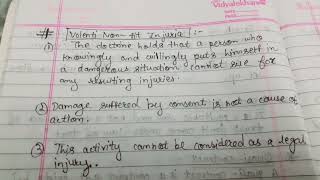 Vidyalekhan
# Volenti Non-fit Injuria :-
(1) The doctrine holds that a person who
knowingly and willingly puts himself in
a dangerous situation cannot sue for
any resulting injuries.
(2) Damage suffered by consent is not a cause of
action.
(3) This activity cannot be considered as a legal
injury.